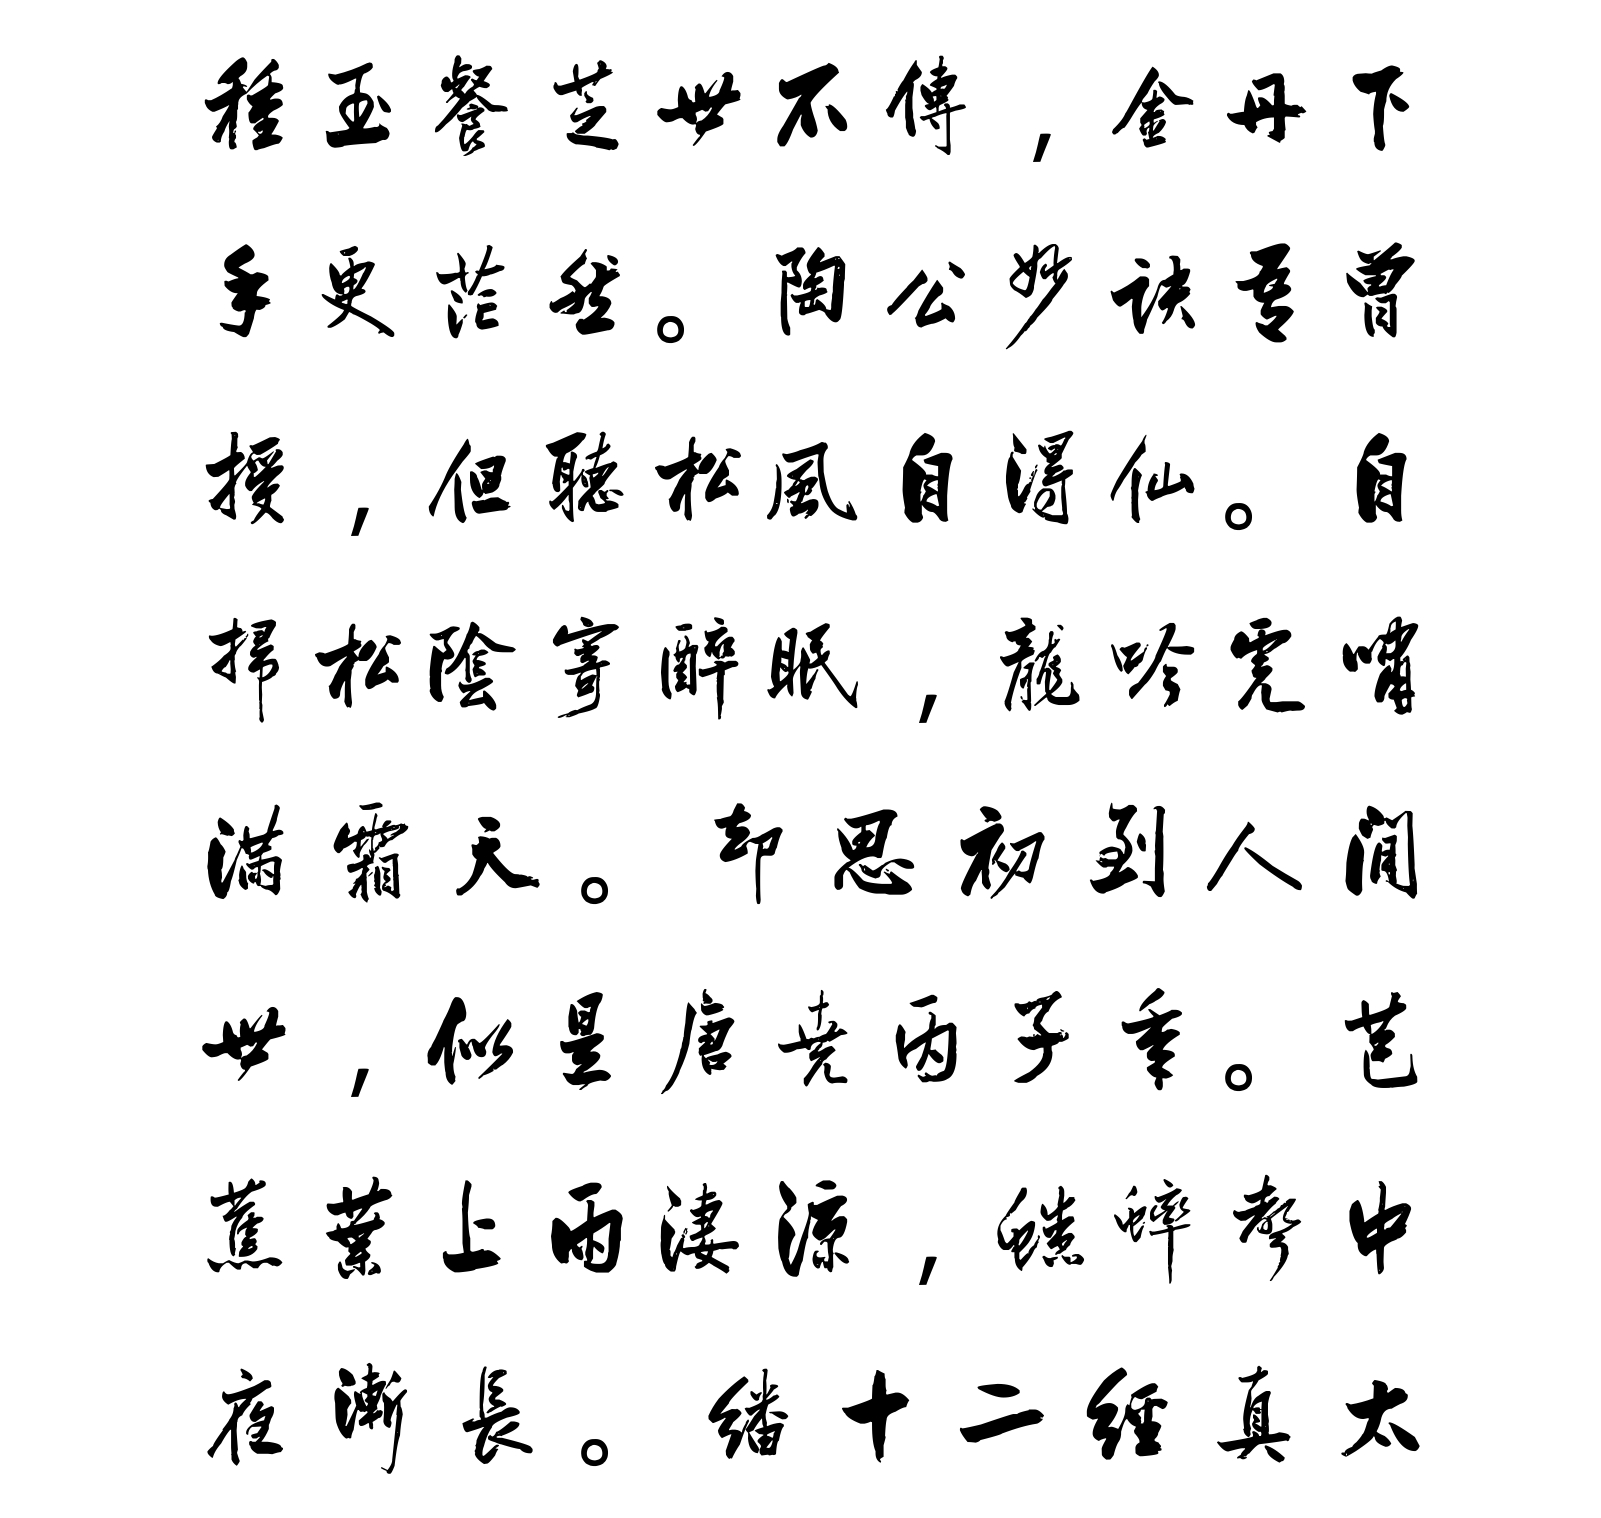 種玉餐芝世不傳，金丹下
手更茫然。陶公妙訣吾曾
授，但聽松風自得仙。自
掃松陰寄醉眠，龍吟虎嘯
滿霜天。却思初到人間
世，似是唐堯丙子年。芭
蕉葉上雨淒涼，蟋蟀聲中
夜漸長。繙十二經真太